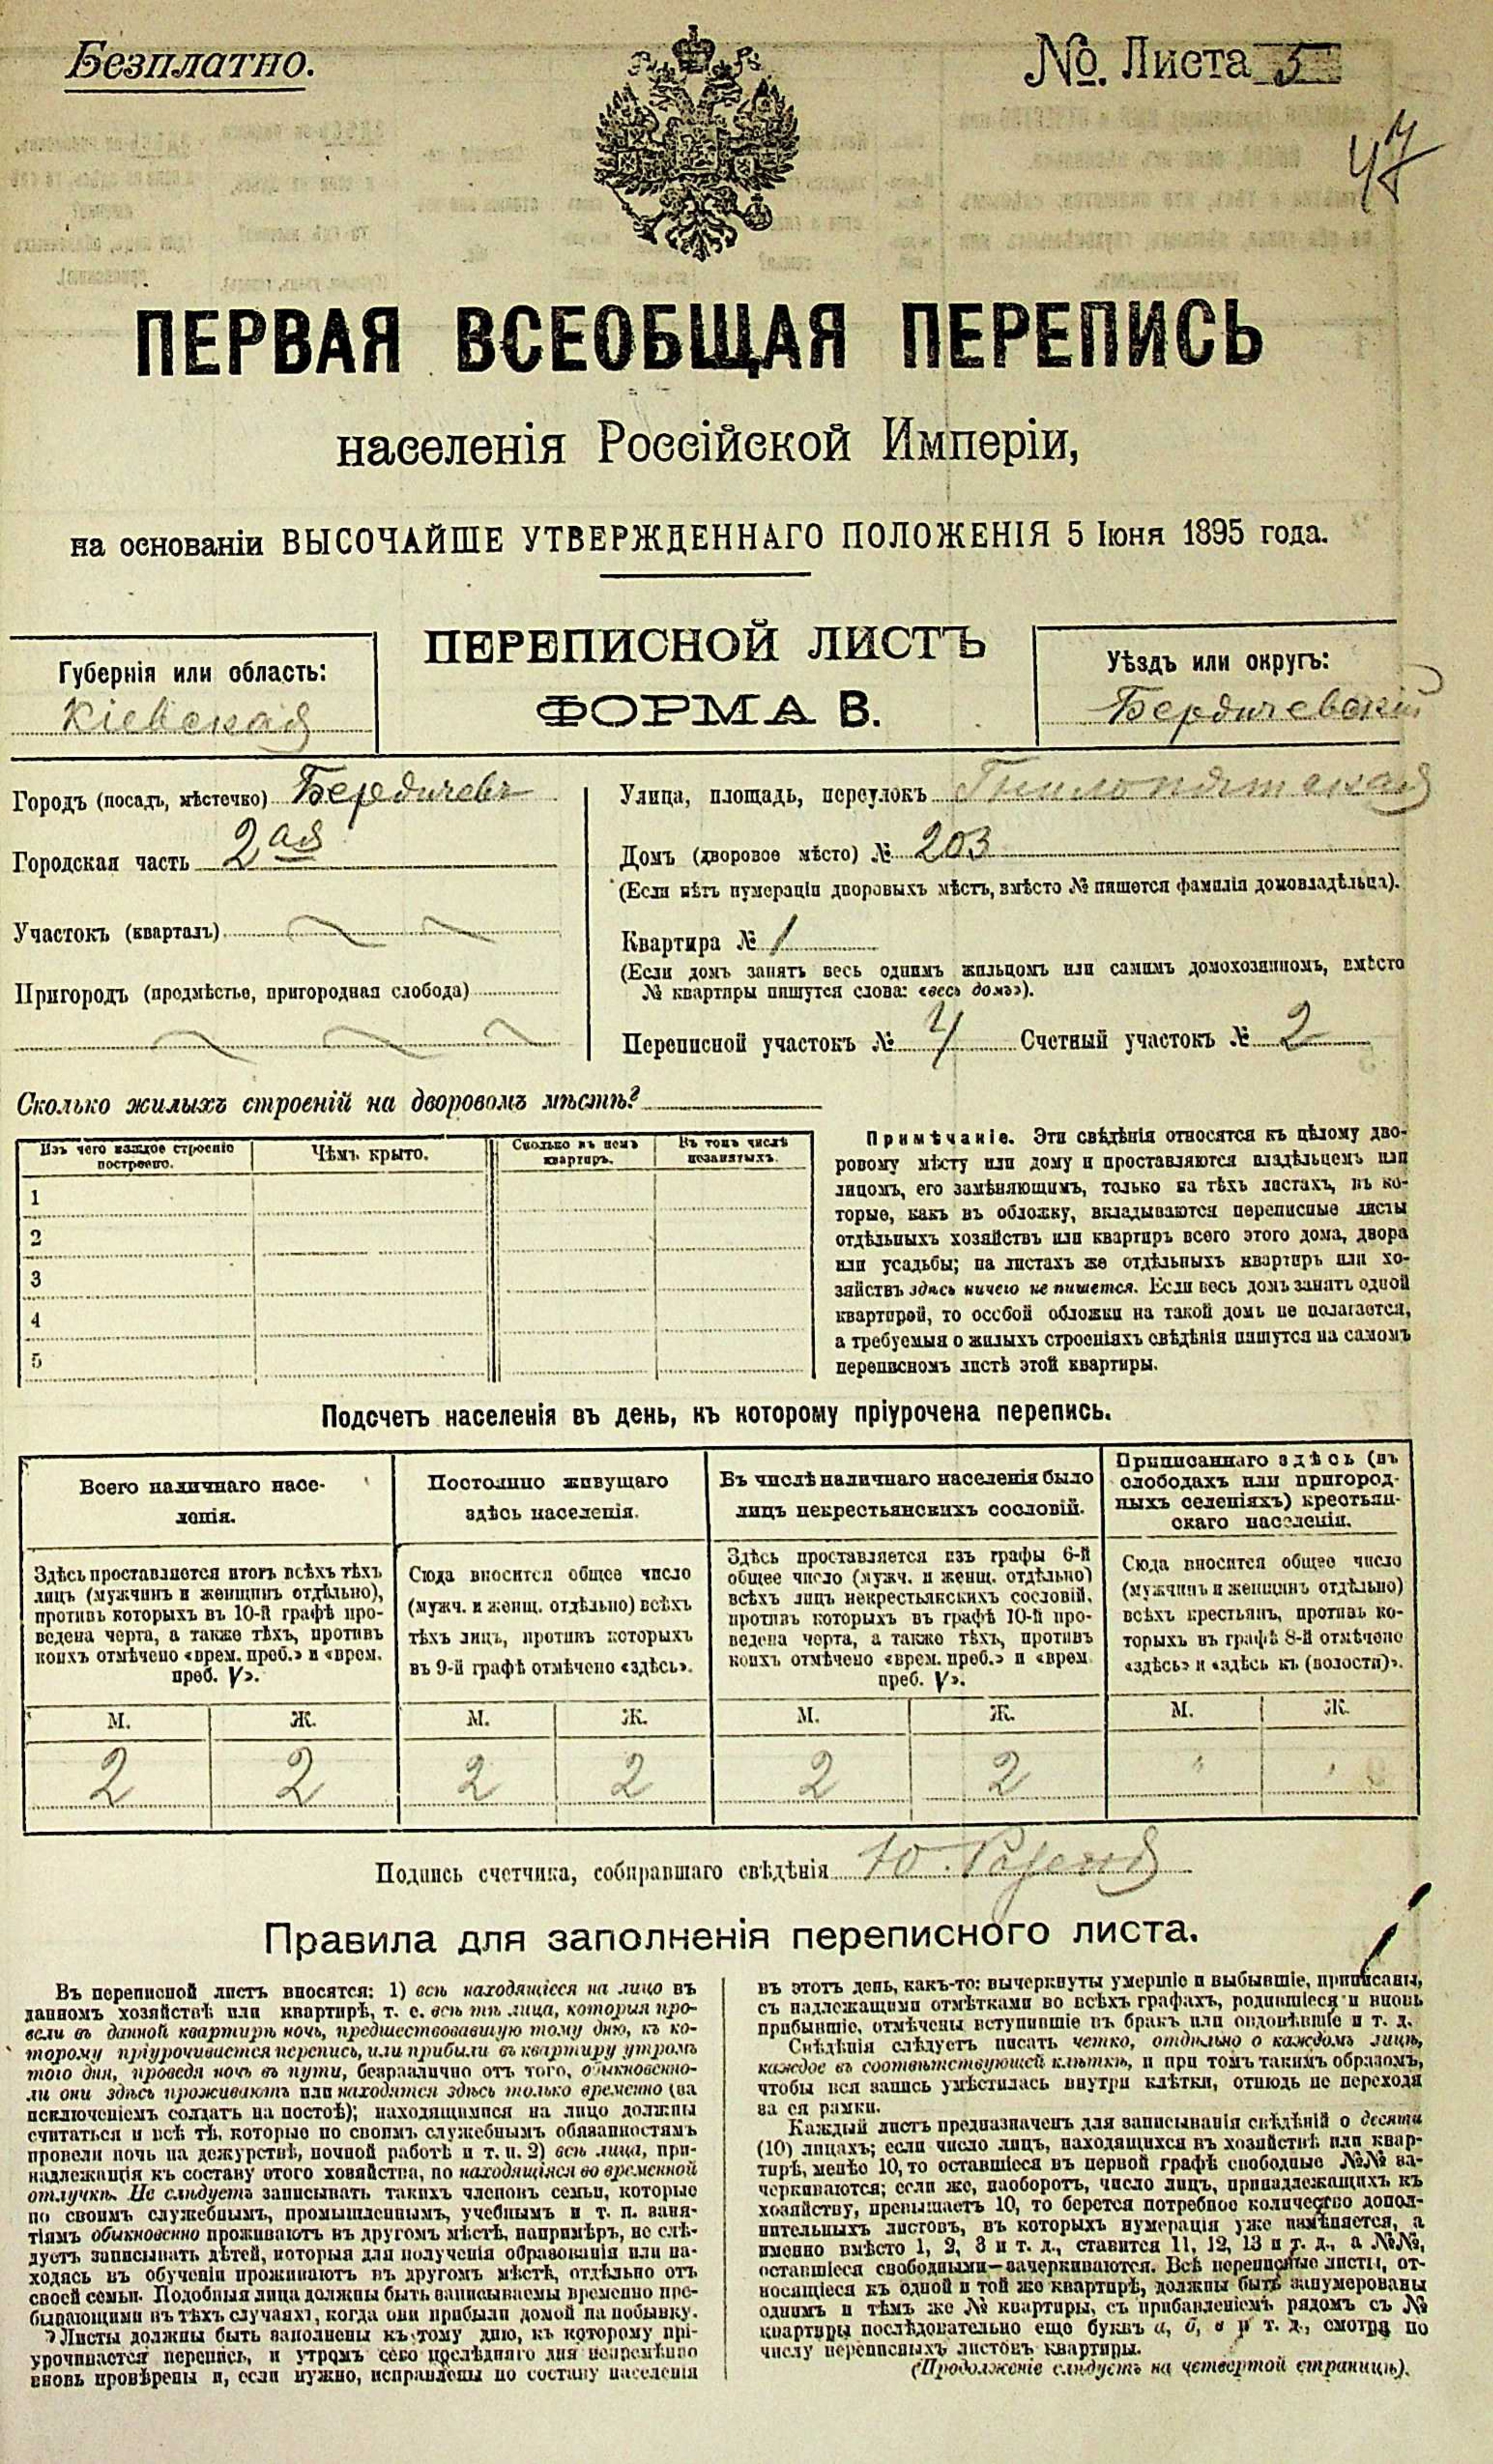 Безплатно.
№. Листа 5
47
ПЕРВАЯ ВСЕОБЩАЯ ПЕРЕПИСЬ
населенія Россійской Имперіи,
на основаніи ВЫСОЧАЙШЕ УТВЕРЖДЕННАГО ПОЛОЖЕНІЯ 5 Іюня 1895 года.
ПЕРЕПИСНОЙ ЛИСТЪ
ФОРМА В.
Губернія или область:
Кіевская
Уѣздъ или округъ:
Бердичевскій
Городъ (посадъ, мѣстечко) Бердичевъ
Городская часть 2ая
Участокъ (кварталъ)
Пригородъ (предмѣстье, пригородная слобода)
Улица, площадь, переулокъ Гнилопятская
Домъ (дворовое мѣсто) № 203
(Если нѣтъ нумераціи дворовыхъ мѣстъ, вмѣсто № пишется фамилія домовладѣльца).
Квартира № 1
(Если домъ занятъ весь однимъ жильцомъ или самимъ домохозяиномъ, вмѣсто
№ квартиры пишутся слова: «весь домъ»).
Переписной участокъ № 4 Счетный участокъ № 2
Сколько жилыхъ строеній на дворовомъ мѣстѣ?
Изъ чего каждое строеніе
построено.
Чѣмъ крыто.
Сколько въ немъ
квартиръ.
Въ томъ числѣ
незанятыхъ.
1
2
3
4
5
Примѣчаніе. Эти свѣдѣнія относятся къ цѣлому дво-
ровому мѣсту или дому и проставляются владѣльцемъ или
лицомъ, его замѣняющимъ, только на тѣхъ листахъ, въ ко-
торые, какъ въ обложку, вкладываются переписные листы
отдѣльныхъ хозяйствъ или квартиръ всего этого дома, двора
или усадьбы; на листахъ же отдѣльныхъ квартиръ или хо-
зяйствъ здѣсь ничего не пишется. Если весь домъ занятъ одной
квартирой, то особой обложки на такой домъ не полагается,
а требуемыя о жилыхъ строеніяхъ свѣдѣнія пишутся на самомъ
переписномъ листѣ этой квартиры.
Подсчетъ населенія въ день, къ которому пріурочена перепись.
Всего наличнаго насе-
ленія.
Постоянно живущаго
здѣсь населенія.
Въ числѣ наличнаго населенія было
лицъ некрестьянскихъ сословій.
Приписаннаго здѣсь (въ
слободахъ или пригород-
ныхъ селеніяхъ) крестьян-
скаго населенія.
Здѣсь проставляется итогъ всѣхъ тѣхъ
лицъ (мужчинъ и женщинъ отдѣльно),
противъ которыхъ въ 10-й графѣ про-
ведена черта, а также тѣхъ, противъ
коихъ отмѣчено «врем. преб.» и «врем.
преб. V».
Сюда вносится общее число
(мужч. и женщ. отдѣльно) всѣхъ
тѣхъ лицъ, противъ которыхъ
въ 9-й графѣ отмѣчено «здѣсь».
Здѣсь проставляется изъ графы 6-й
общее число (мужч. и женщ. отдѣльно)
всѣхъ лицъ некрестьянскихъ сословій,
противъ которыхъ въ графѣ 10-й про-
ведена черта, а также тѣхъ, противъ
коихъ отмѣчено «врем. преб.» и «врем.
преб. V».
Сюда вносится общее число
(мужчинъ и женщинъ отдѣльно)
всѣхъ крестьянъ, противъ ко-
торыхъ въ графѣ 8-й отмѣчено
«здѣсь» и «здѣсь къ (волости)».
М. Ж. М. Ж. М. Ж. М. Ж.
2 2 2 2 2 2
Подпись счетчика, собиравшаго свѣдѣнія Ю.
Правила для заполненія переписного листа.
Въ переписной листъ вносятся: 1) всѣ находящіеся на лицо въ
данномъ хозяйствѣ или квартирѣ, т. е. всѣ тѣ лица, которыя про-
вели въ данной квартирѣ ночь, предшествовавшую тому дню, къ ко-
торому пріурочивается перепись, или прибыли въ квартиру утромъ
того дня, проведя ночь въ пути, безразлично отъ того, обыкновенно-
ли они здѣсь проживаютъ или находятся здѣсь только временно (за
исключеніемъ солдатъ на постоѣ); находящимися на лицо должны
считаться и всѣ тѣ, которые по своимъ служебнымъ обязанностямъ
провели ночь на дежурствѣ, ночной работѣ и т. п. 2) всѣ лица, при-
надлежащія къ составу этого хозяйства, но находящіяся во временной
отлучкѣ. Не слѣдуетъ записывать такихъ членовъ семьи, которые
по своимъ служебнымъ, промышленнымъ, учебнымъ и т. п. заня-
тіямъ обыкновенно проживаютъ въ другомъ мѣстѣ, напримѣръ, не слѣ-
дуетъ записывать дѣтей, которыя для полученія образованія или на-
ходясь въ обученіи проживаютъ въ другомъ мѣстѣ, отдѣльно отъ
своей семьи. Подобныя лица должны быть записываемы временно пре-
бывающими въ тѣхъ случаяхъ, когда они прибыли домой на побывку.
Листы должны быть заполнены къ тому дню, къ которому прі-
урочивается перепись, и утромъ сего послѣдняго дня непремѣнно
вновь провѣрены и, если нужно, исправлены по составу населенія
въ этотъ день, какъ-то: вычеркнуты умершіе и выбывшіе, приписаны,
съ надлежащими отмѣтками во всѣхъ графахъ, родившіеся и вновь
прибывшіе, отмѣчены вступившіе въ бракъ или овдовѣвшіе и т. д.
Свѣдѣнія слѣдуетъ писать четко, отдѣльно о каждомъ лицѣ,
каждое въ соотвѣтствующей клѣткѣ, и при томъ такимъ образомъ,
чтобы вся запись умѣстилась внутри клѣтки, отнюдь не переходя
за ея рамки.
Каждый листъ предназначенъ для записыванія свѣдѣній о десяти
(10) лицахъ; если число лицъ, находящихся въ хозяйствѣ или квар-
тирѣ, менѣе 10, то оставшіеся въ первой графѣ свободные №№ за-
черкиваются; если же, наоборотъ, число лицъ, принадлежащихъ къ
хозяйству, превышаетъ 10, то берется потребное количество допол-
нительныхъ листовъ, въ которыхъ нумерація уже измѣняется, а
именно вмѣсто 1, 2, 3 и т. д., ставится 11, 12, 13 и т. д., а №№,
оставшіеся свободными—зачеркиваются. Всѣ переписные листы, от-
носящіеся къ одной и той же квартирѣ, должны быть занумерованы
однимъ и тѣмъ же № квартиры, съ прибавленіемъ рядомъ съ №
квартиры послѣдовательно еще буквъ а, б, в и т. д., смотря по
числу переписныхъ листовъ квартиры.
(Продолженіе слѣдуетъ на четвертой страницѣ).